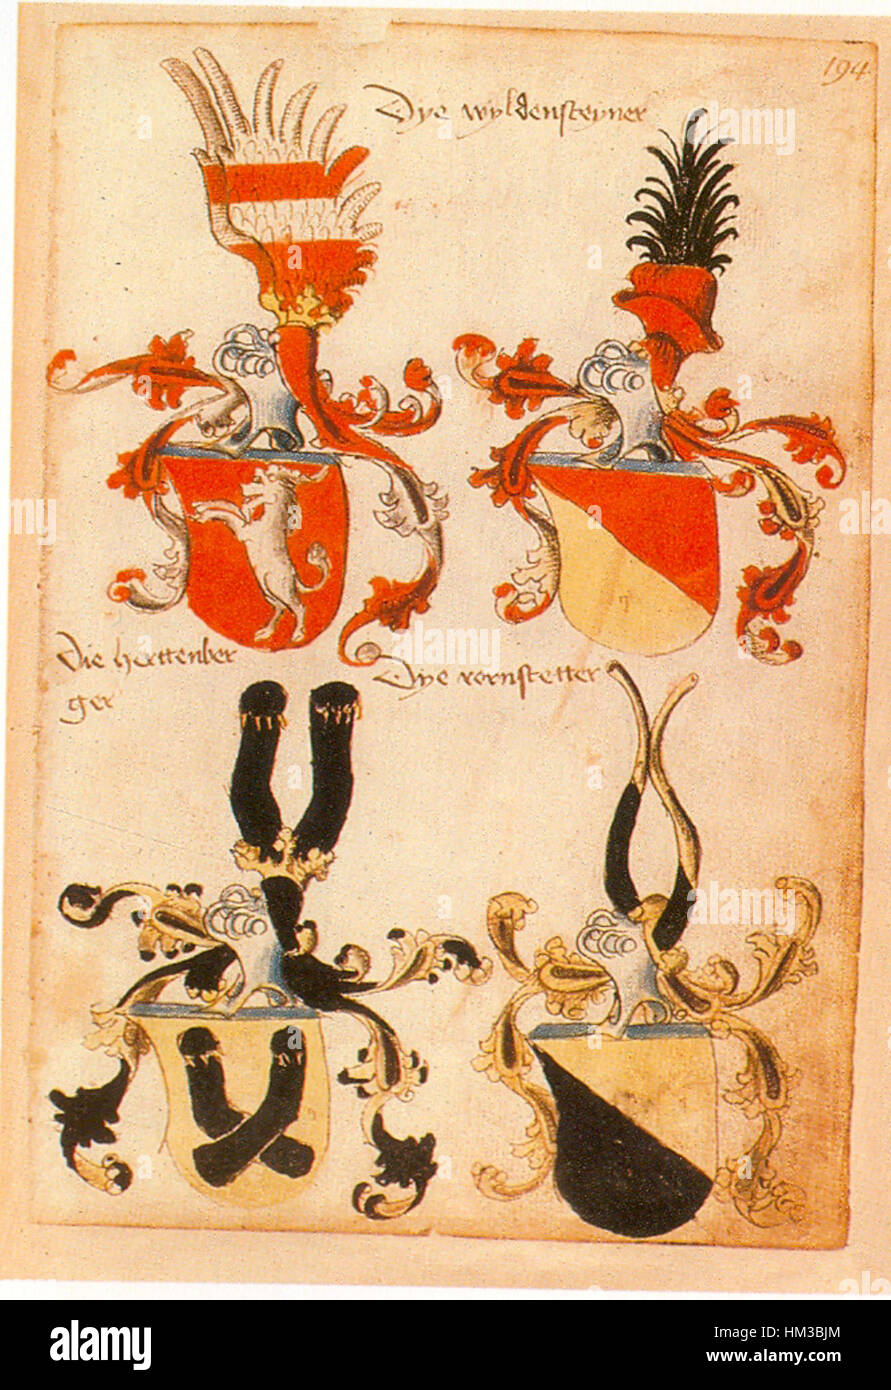 194
Dye wyldensteyner
Die herttenber
ger
Dye rornstetter
alamy
Image ID: HM3BJM
www.alamy.com